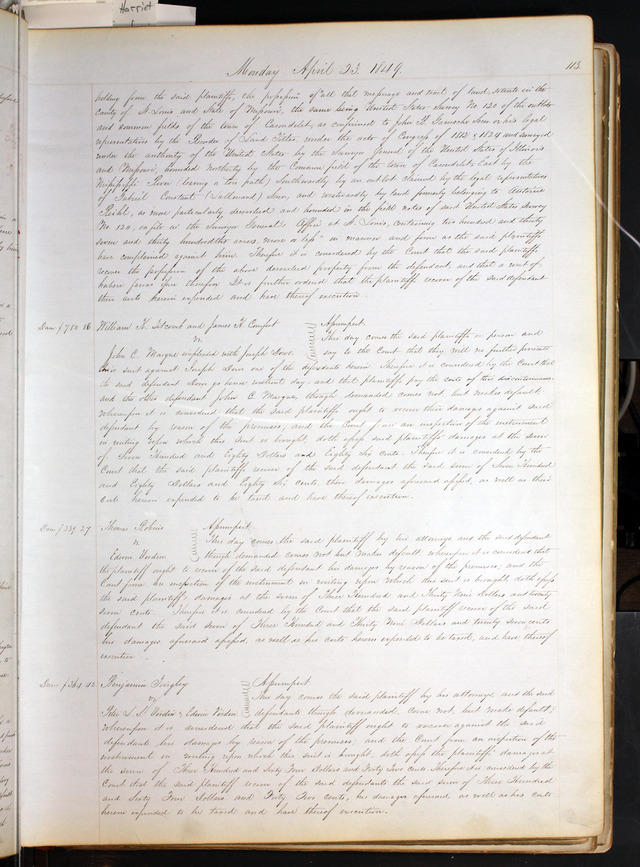 Harriet
Monday April 23. 1849.
113
holding from the said plaintiffs, the possession of all that messuage and tract of land, situate in the
County of St Louis and State of Missouri, the same being United States Survey No 120 of the outlots
and common fields of the town of Carondelet, as confirmed to John B. Gamache Senr or his legal
representatives by the Recorder of Land Titles, under the acts of Congress of 1812 & 1824 and surveyed
under the authority of the United States by the Surveyor General of the United States of Illinois
and Missouri, bounded Northerly by the Common field of the town of Carondelet, East by the
Mississippi River (leaving a tow path) Southwardly by an outlot claimed by the legal representatives
of Gabriel Constant (Lallemand) Senr, and westwardly by land formerly belonging to Antoine
as more particularly described and bounded in the field notes of said United States Survey
No 120, on file in the Surveyor General's Office at St Louis, containing two hundred and thirty
seven and thirty hundredths acres more or less in manner and form as the said plaintiffs
have complained against him. Therefore it is considered by the Court that the said plaintiffs
recover the possession of the above described property from the defendant, and that a writ of
habere facias issue therefor. It is further ordered that the plaintiffs recover of the said defendant
their costs herein expended and have thereof execution.
Dam $780.86 William H. and James H. Comfort
vs
Assumpsit.
John C. Marque impleaded with Joseph Dowe.
This day comes the said plaintiffs in person and
say to the Court that they will no further prosecute
their suit against Joseph Dowe one of the defendants herein. Therefore it is considered by the Court that
the said defendant Dowe go hence without day, and that plaintiffs pay the costs of this discontinuance,
and the other defendant John C. Marque, though demanded comes not but makes default
wherefore it is considered that the said plaintiffs ought to recover their damages against said
defendant by reason of the premises; and the Court from an inspection of the instrument
in writing upon which this suit is brought, doth assess said plaintiffs damages at the sum
of Seven Hundred and Eighty Dollars and Eighty Six cents. Therefore it is considered by the
Court that the said plaintiffs recover of the said defendant the said sum of Seven Hundred
and Eighty Dollars and Eighty Six cents, their damages aforesaid assessed, as well as their
costs herein expended to be taxed and have thereof execution.
Dam $339.27 Thomas Robins
vs
Assumpsit.
Edwin Worden
This day comes the said plaintiff by his attorney and the said defendant
though demanded comes not but makes default wherefore it is considered that
the plaintiff ought to recover of the said defendant his damages by reason of the premises; and the
Court from an inspection of the instrument in writing upon which this suit is brought doth assess
the said plaintiff's damages at the sum of Three Hundred and Thirty Nine Dollars and twenty
seven cents. Therefore it is considered by the Court that the said plaintiff recover of the said
defendant the said sum of Three Hundred and Thirty Nine Dollars and twenty Seven cents
his damages aforesaid assessed, as well as his costs herein expended to be taxed, and have thereof
execution
Dam $364.42 Benjamin
vs
Assumpsit
Peter & Edwin Worden
This day comes the said plaintiff by his attorney, and the said
defendants though demanded, come not, but make default;
whereupon it is considered that the said plaintiff ought to recover against the said
defendants his damages by reason of the premises; and the Court from an inspection of the
instrument in writing upon which this suit is brought, doth assess the plaintiffs damages at
the sum of Three Hundred and sixty Four Dollars and Forty Two cents Therefore it is considered by the
Court that the said plaintiff recover of the said defendants the said sum of Three Hundred
and Sixty Four Dollars and Forty Two cents, his damages aforesaid as well as his costs
herein expended to be taxed and have thereof execution.